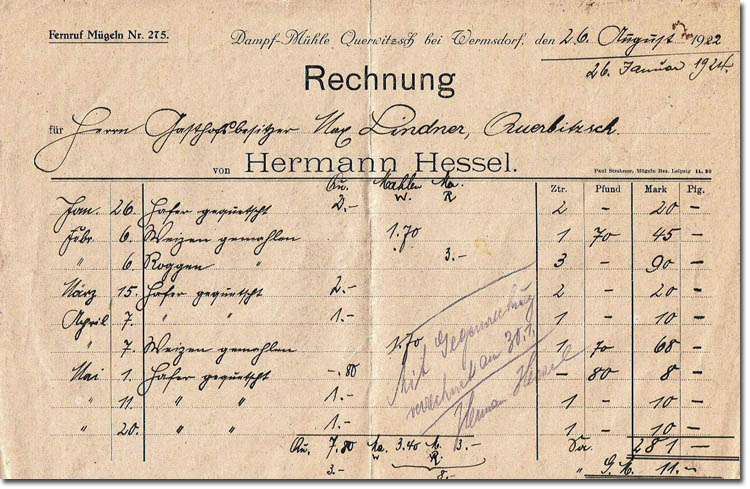 Fernruf Mügeln Nr. 275.
Dampf-Mühle Querwitzsch bei Wermsdorf, den 26. August 1922
26. Januar 1924.
Rechnung
für Herrn Gasthofsbesitzer Max Lindner, Querbitzsch.
von Hermann Hessel.
Paul Strubener, Mügeln Bez. Leipzig 11. 20
Qu. Mahlen Ma. Ztr. Pfund Mark Pfg.
W. R
Jan. 26. Hafer gequetscht 2.- 2 - 20 -
Febr. 6. Weizen gemahlen 1.70 1 70 45 -
" 6. Roggen " 3.- 3 - 90 -
März 15. Hafer gequetscht 2.- 2 - 20 -
April 7. " " 1.- 1 - 10 -
" 7. Weizen gemahlen 1.70 1 70 68 -
Mai 1. Hafer gequetscht -.80 - 80 8 -
" 11. " " 1.- 1 - 10 -
" 20. " " 1.- 1 - 10 -
Mit Gegenrechnung
verrechnet am 30.1.
Herman Hessel
Qu. 7.80 Ma. 3.40 M. 3.- Sa. 281 -
W R
3.- 8.- " G. M. 11.-